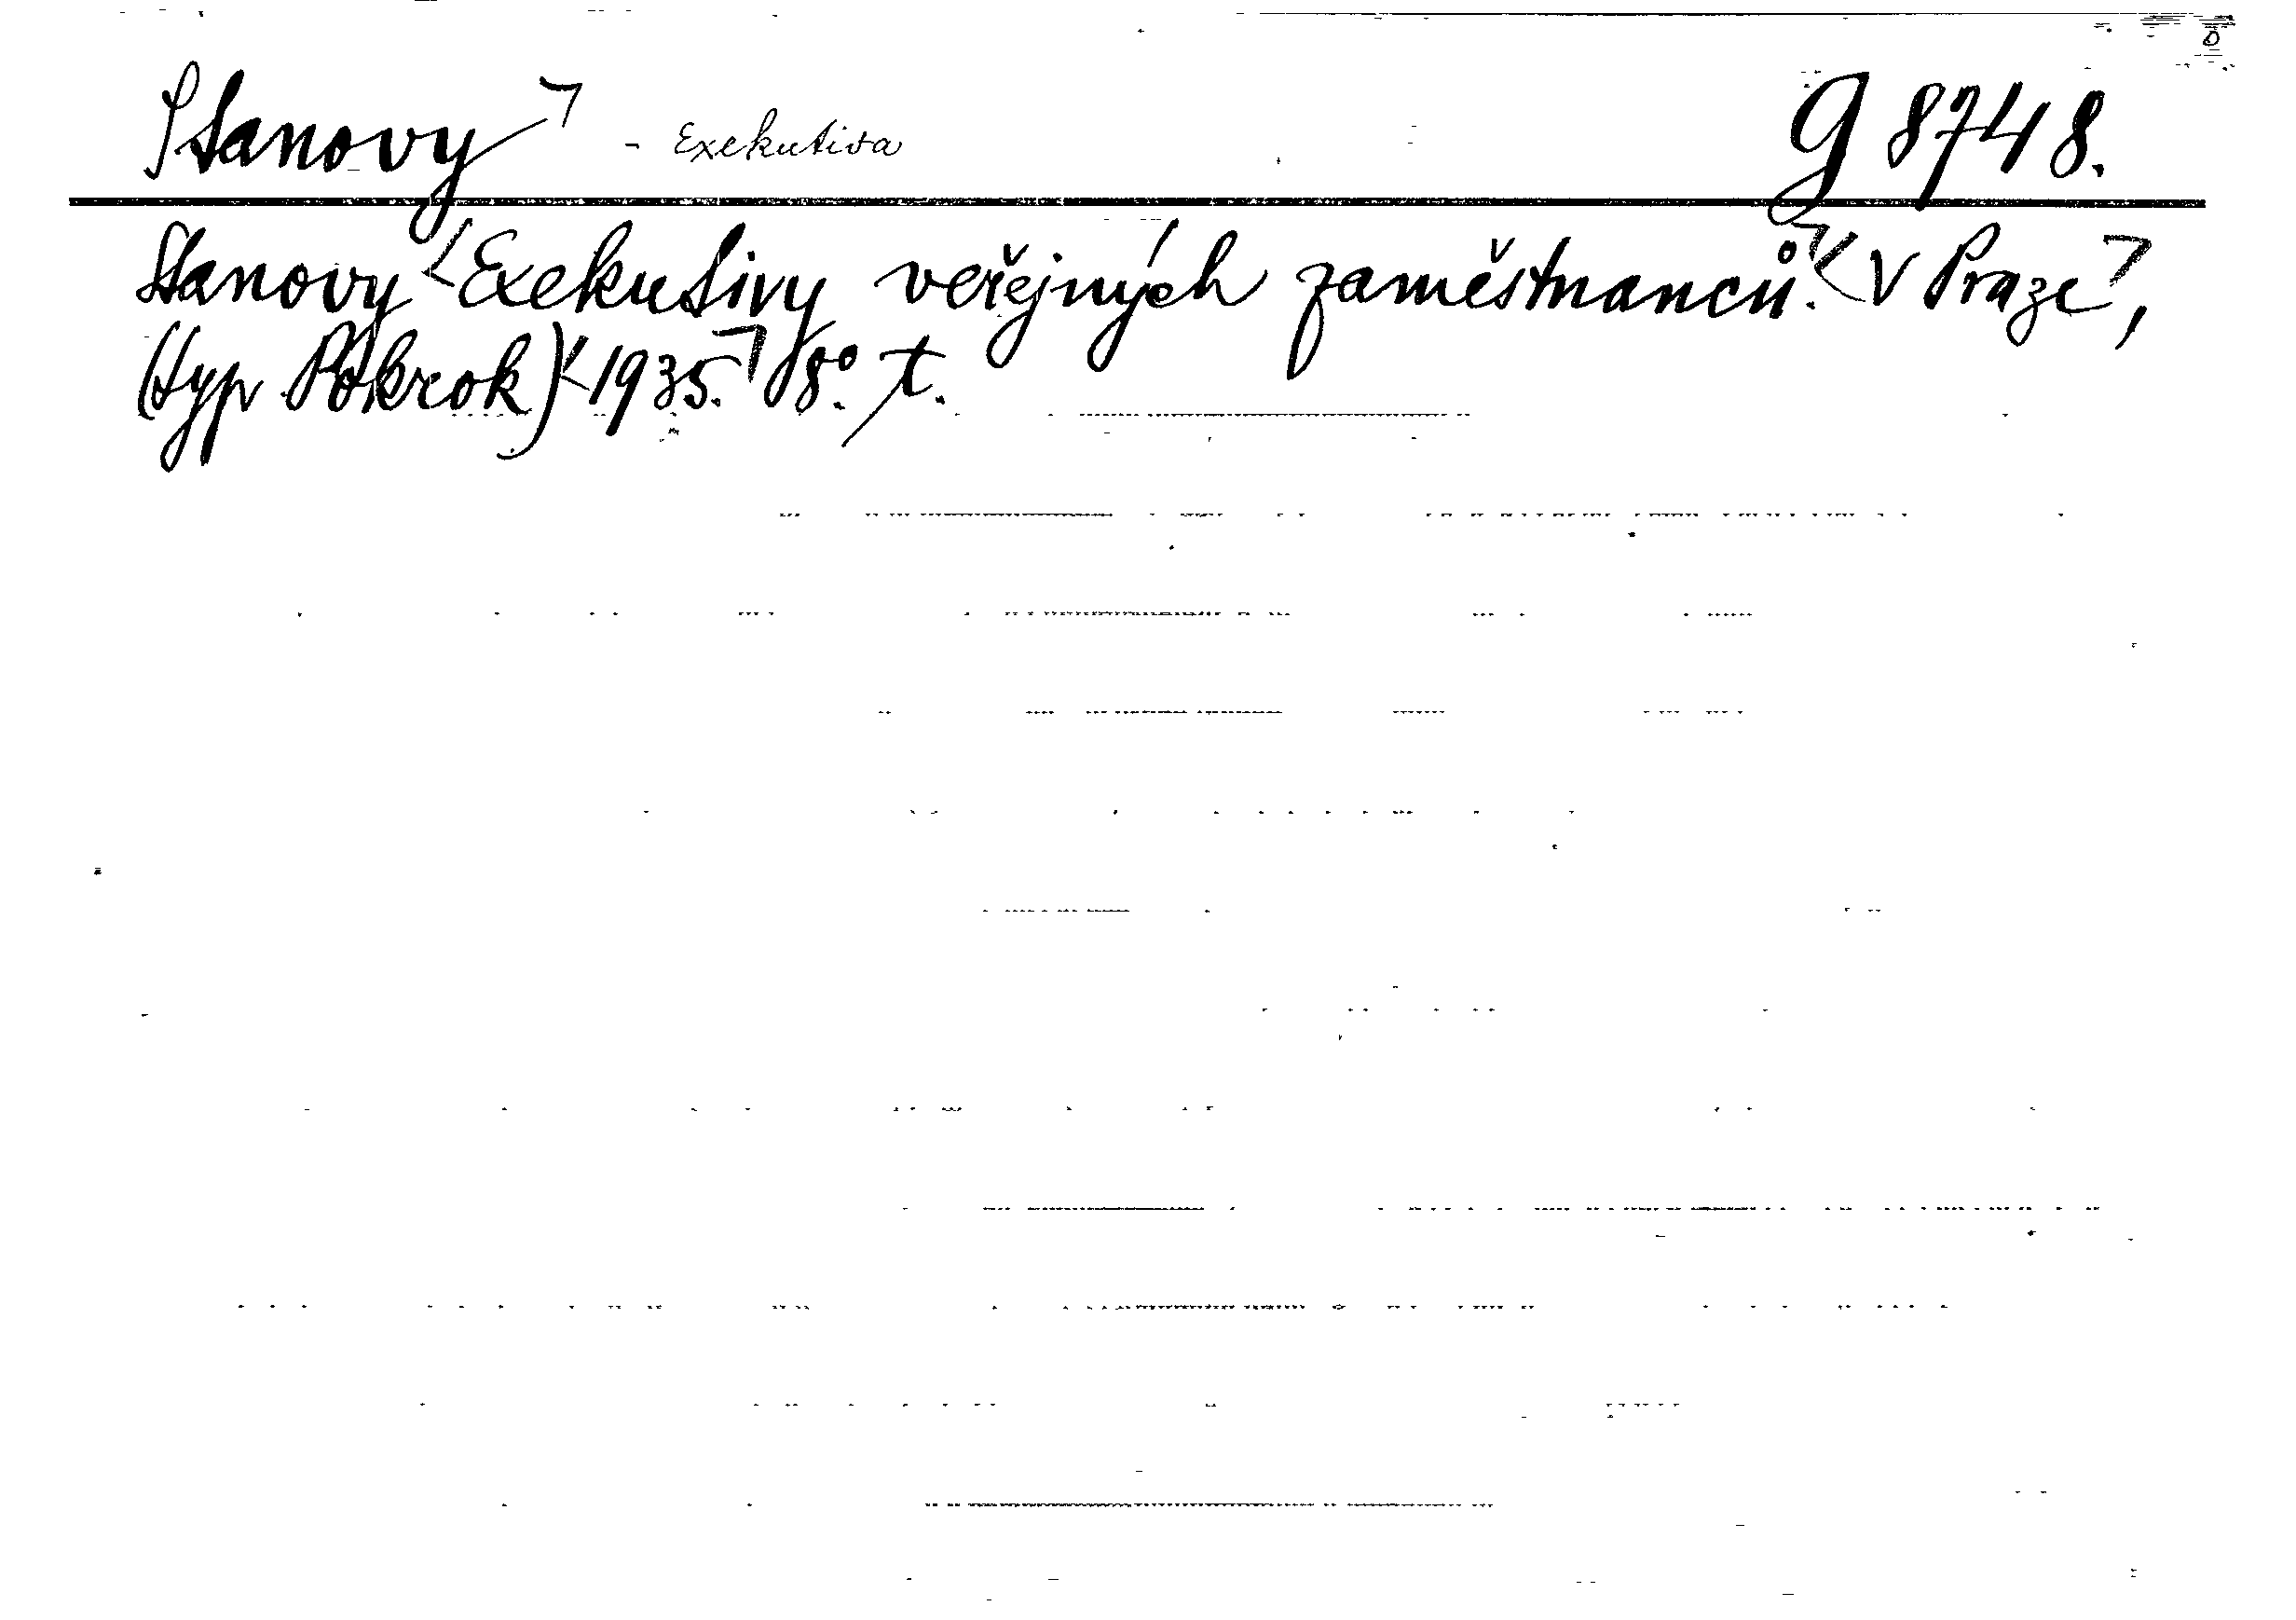 Stanovy - Exekutiva G 8748.
Stanovy Exekutivy veřejných zaměstnanců. V Praze,
(typ. Pokrok) 1935. 8°. t.